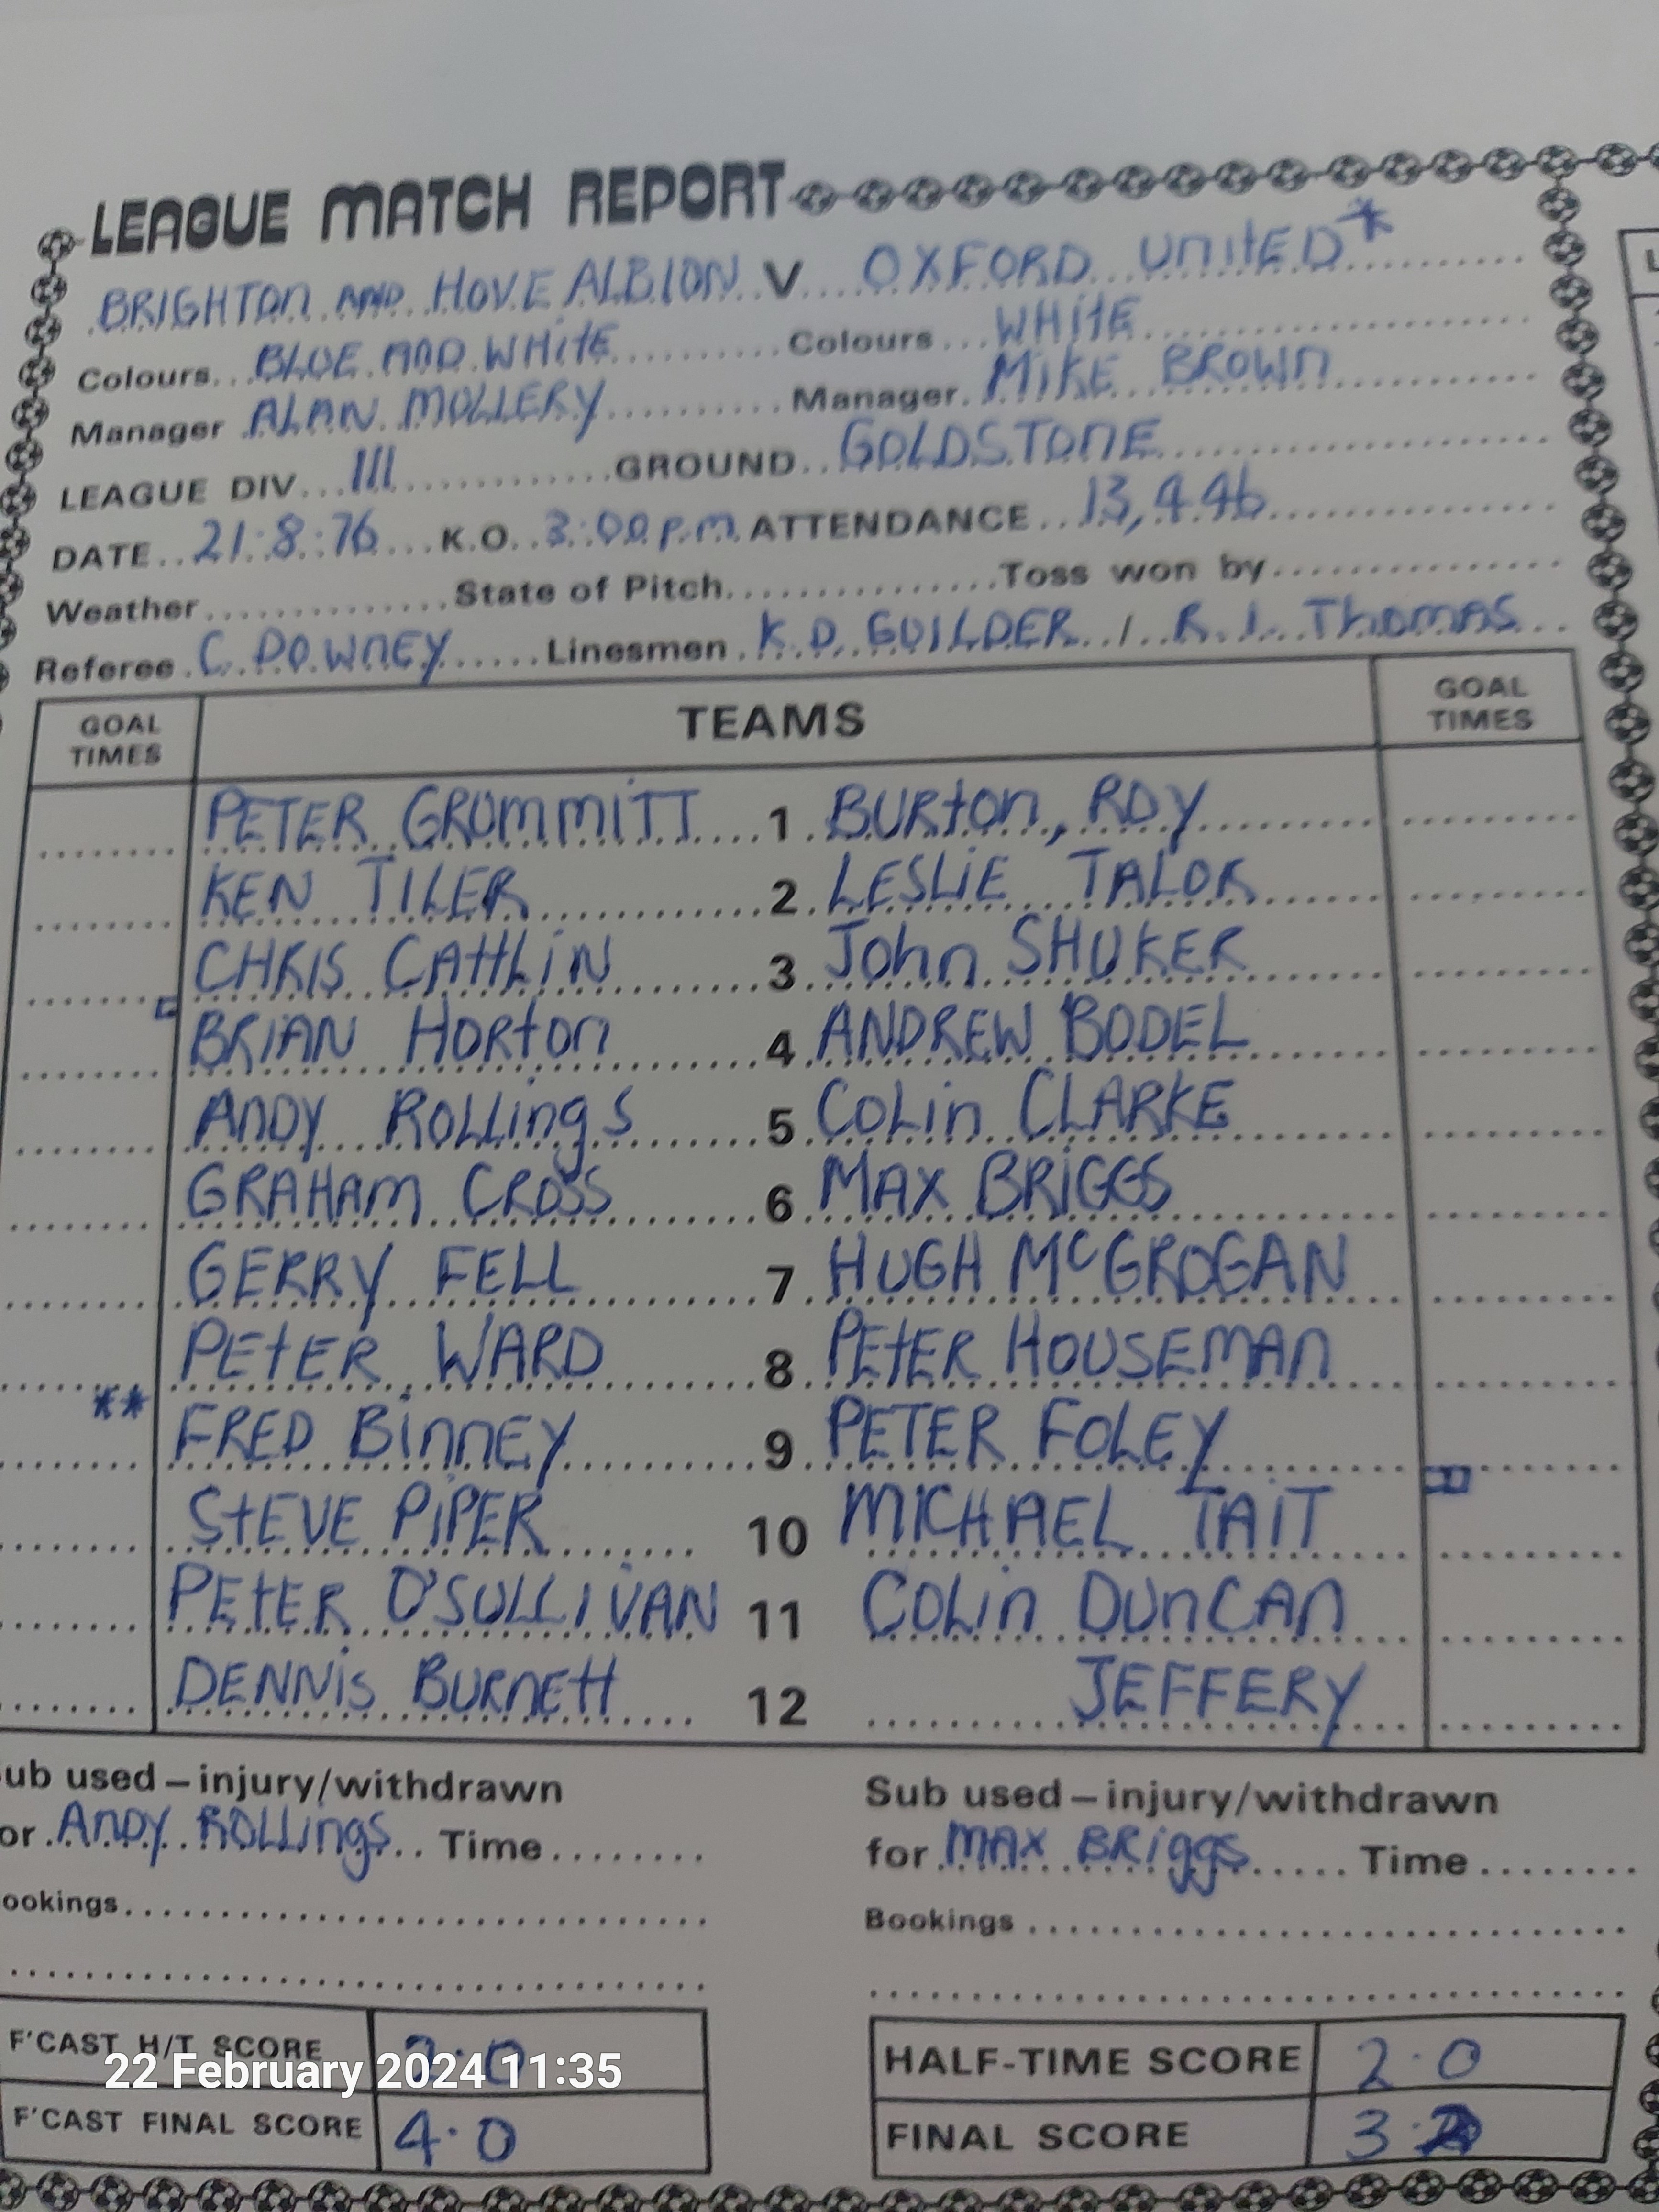 LEAGUE MATCH REPORT
BRIGHTON AND HOVE ALBION V OXFORD UNITED*
Colours BLUE AND WHITE Colours WHITE
Manager ALAN MULLERY Manager MIKE BROWN
LEAGUE DIV III GROUND GOLDSTONE
DATE 21:8:76 K.O. 3:00 p.m. ATTENDANCE 13,446
Weather State of Pitch Toss won by
Referee C. DOWNEY Linesmen K.D. GUILDER / R. L. THOMAS
GOAL TIMES TEAMS GOAL TIMES
PETER GRUMMITT 1 BURTON, ROY
KEN TILER 2 LESLIE TALOR
CHRIS CATTLIN 3 John SHUKER
BRIAN HORTON 4 ANDREW BODEL
ANDY ROLLINGS 5 COLIN CLARKE
GRAHAM CROSS 6 MAX BRIGGS
GERRY FELL 7 HUGH McGROGAN
PETER WARD 8 PETER HOUSEMAN
** FRED BINNEY 9 PETER FOLEY
STEVE PIPER 10 MICHAEL TAIT
PETER O'SULLIVAN 11 COLIN DUNCAN
DENNIS BURNETT 12 JEFFERY
ub used – injury/withdrawn Sub used – injury/withdrawn
or ANDY ROLLINGS Time for MAX BRIGGS Time
ookings Bookings
F'CAST H/T SCORE 2·0 HALF-TIME SCORE 2·0
22 February 2024 11:35
F'CAST FINAL SCORE 4·0 FINAL SCORE 3·